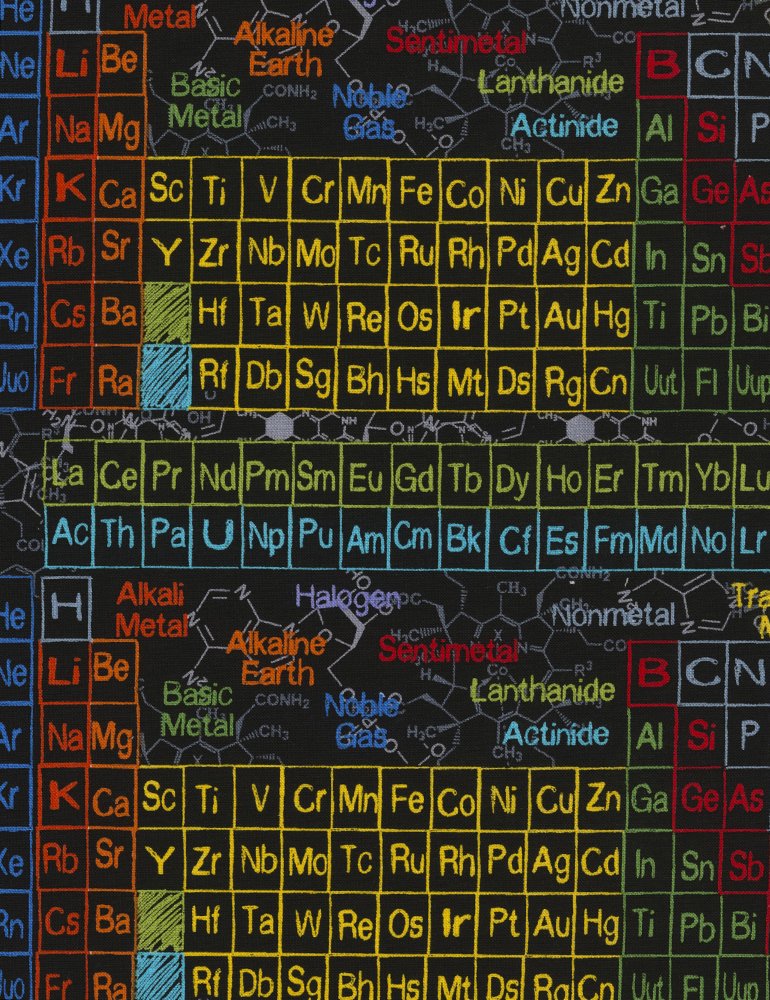 He H Metal Alkaline Earth Sentimetal Nonmetal
Ne Li Be Basic Metal CONH₂ Noble Gas Lanthanide R³ B C N
Ar Na Mg CH₃ H₃C Actinide Al Si P
Kr K Ca Sc Ti V Cr Mn Fe Co Ni Cu Zn Ga Ge As
Xe Rb Sr Y Zr Nb Mo Tc Ru Rh Pd Ag Cd In Sn Sb
Rn Cs Ba Hf Ta W Re Os Ir Pt Au Hg Ti Pb Bi
Uuo Fr Ra Rf Db Sg Bh Hs Mt Ds Rg Cn Uut Fl Uup
La Ce Pr Nd Pm Sm Eu Gd Tb Dy Ho Er Tm Yb Lu
Ac Th Pa U Np Pu Am Cm Bk Cf Es Fm Md No Lr
He H Alkali Metal Halogen CH₃ CONH₂ Nonmetal Tra
Ne Li Be Alkaline Earth Sentimetal B C N
Basic Metal CONH₂ Noble Gas Lanthanide R³
Ar Na Mg CH₃ H₃C Actinide Al Si P
Kr K Ca Sc Ti V Cr Mn Fe Co Ni Cu Zn Ga Ge As
Xe Rb Sr Y Zr Nb Mo Tc Ru Rh Pd Ag Cd In Sn Sb
Rn Cs Ba Hf Ta W Re Os Ir Pt Au Hg Ti Pb Bi
Uuo Fr Ra Rf Db Sg Bh Hs Mt Ds Rg Cn Uut Fl Uup